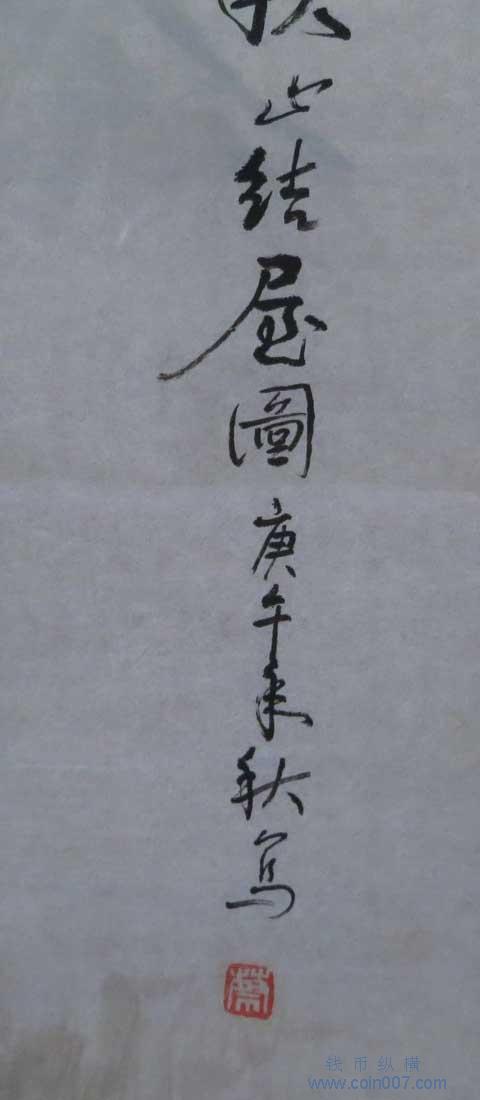 山结屋圖庚午年秋写
钱币纵横
www.coin007.com